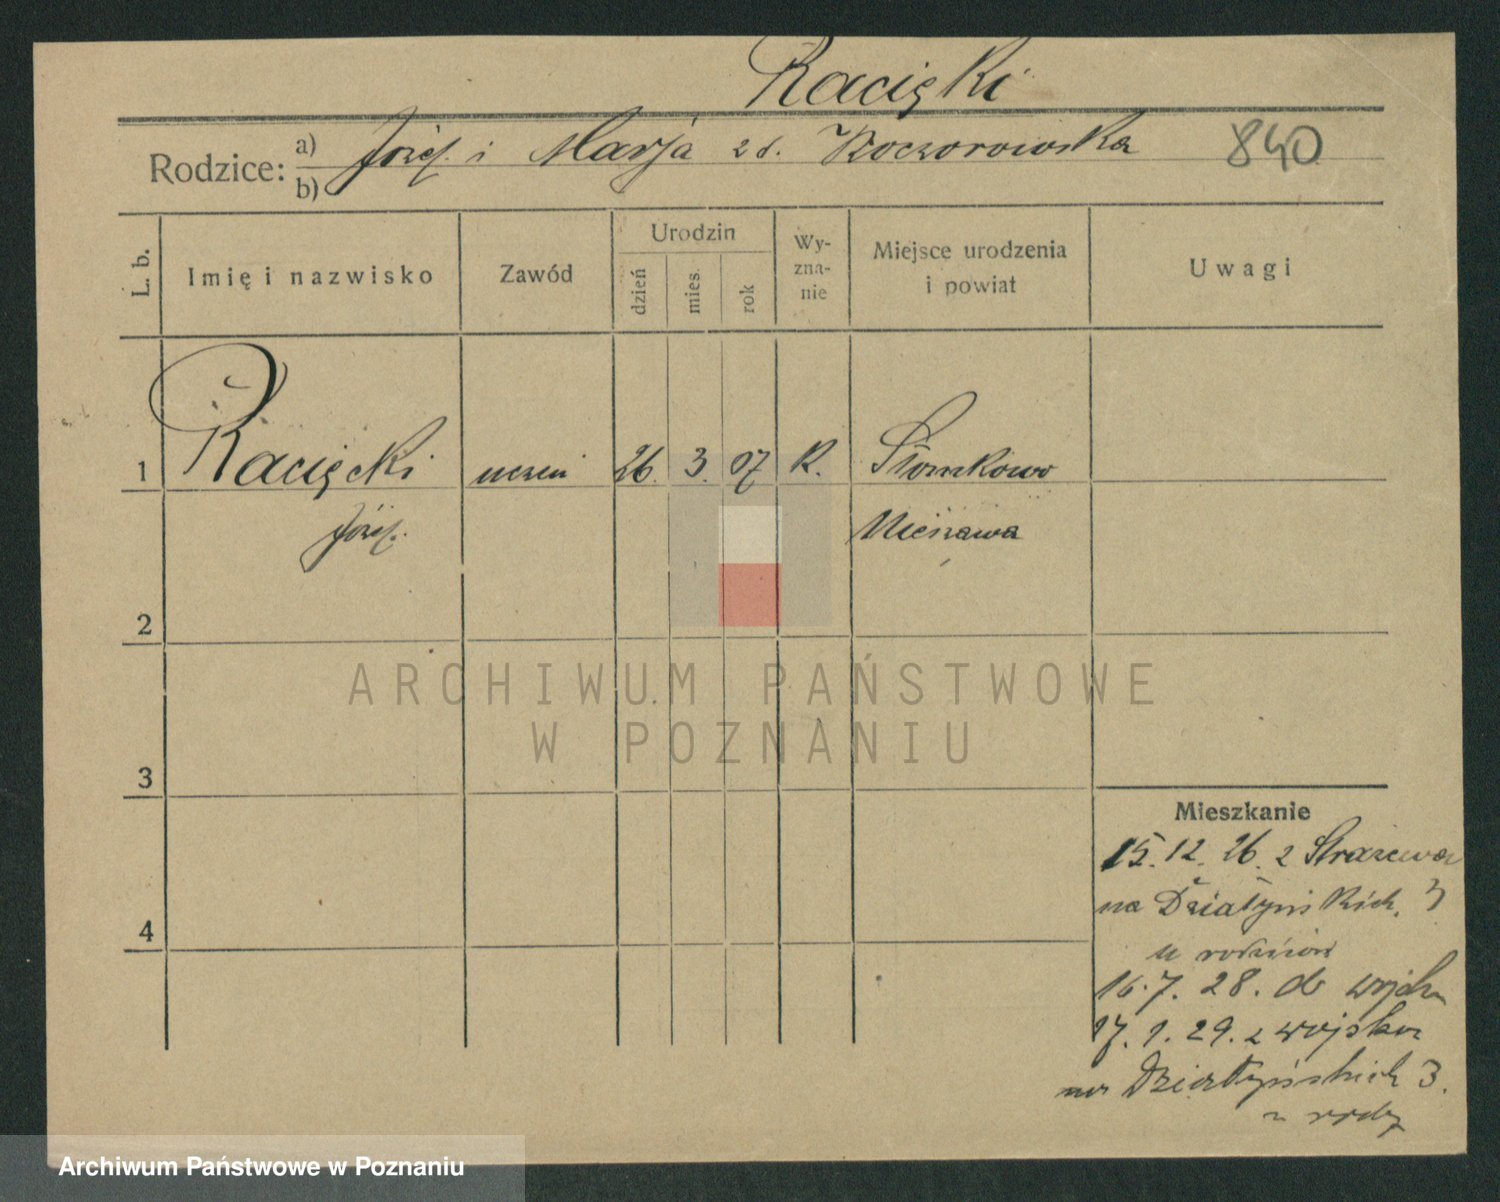 Racięcki
Rodzice: a) Józef i Marja z d. Koczorowska 840
b)
L. b.
Imię i nazwisko
Zawód
Urodzin
dzień
mies.
rok
Wy-
zna-
nie
Miejsce urodzenia
i powiat
Uwagi
1 Racięcki uczeń 26. 3. 07 K. Słomkowo
Józef. Nieszawa
2
3
4
Mieszkanie
15. 12. 26. z
na Działyńskich. 3
u rodziców
16. 7. 28. do wojska
17. 9. 29. z wojska
na Działyńskich 3.
ARCHIWUM PAŃSTWOWE
W POZNANIU
Archiwum Państwowe w Poznaniu